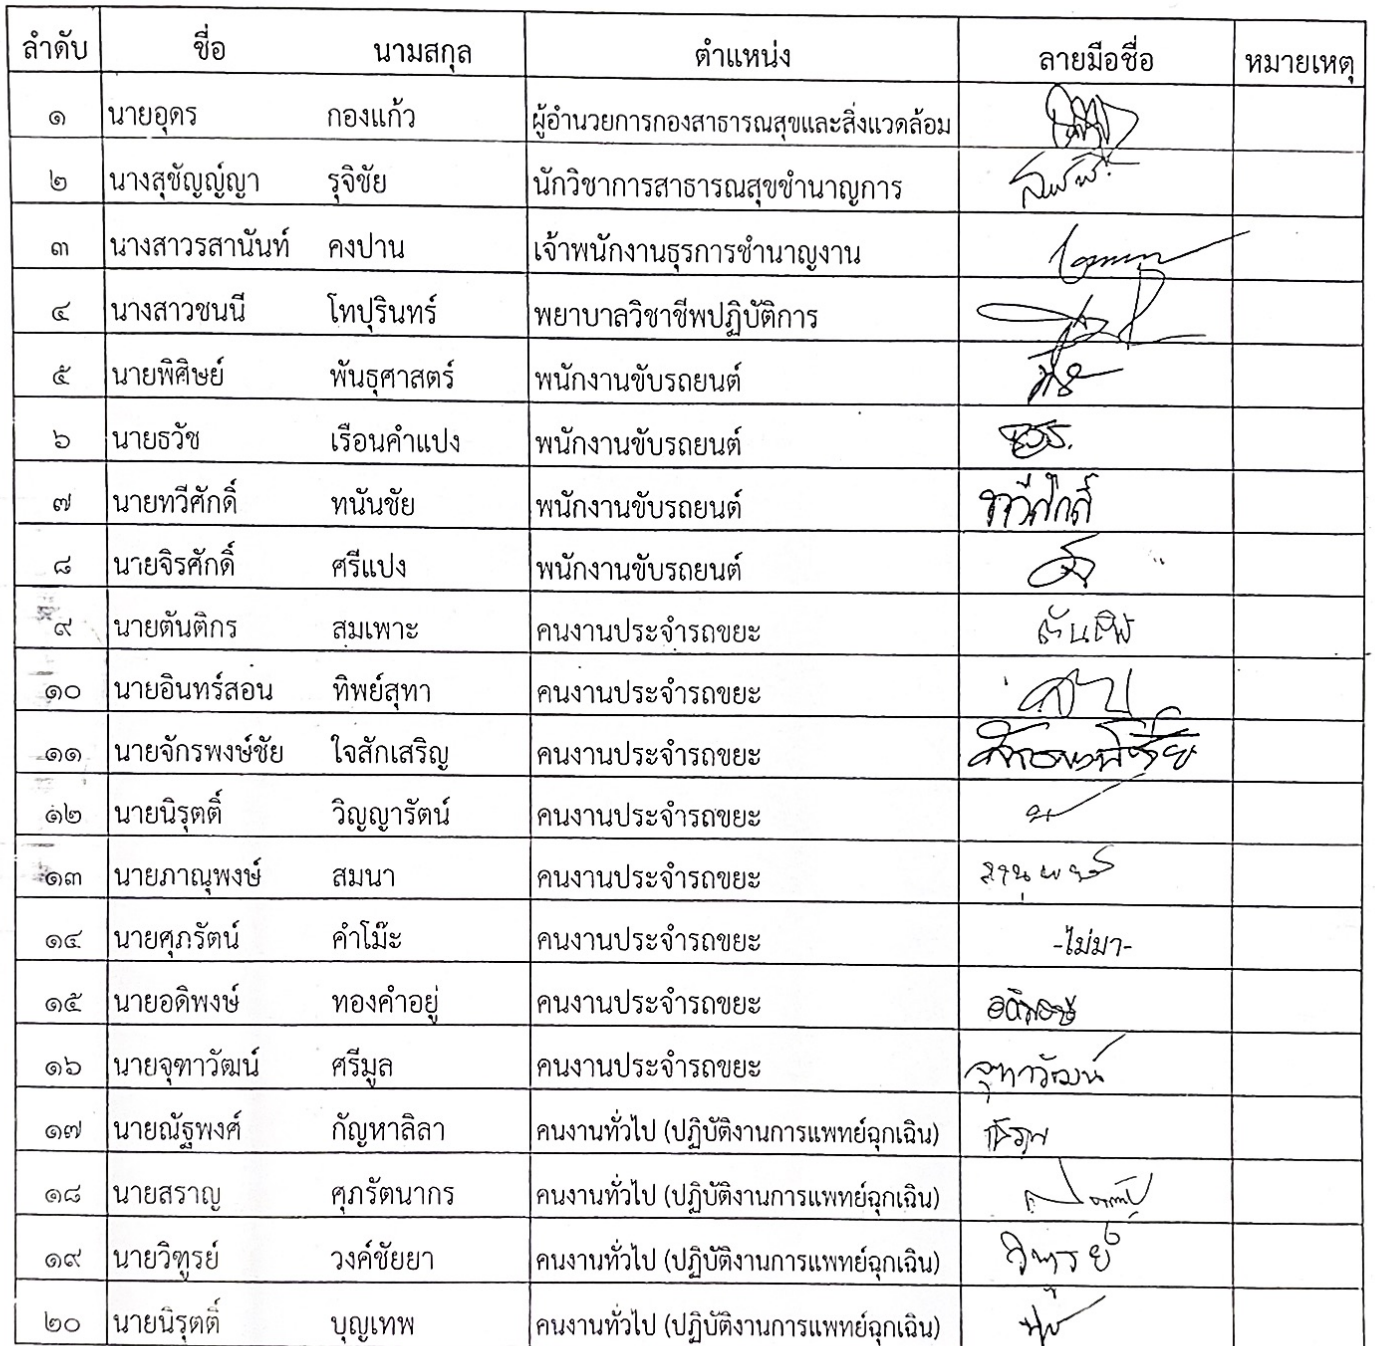 ลำดับ ชื่อ นามสกุล ตำแหน่ง ลายมือชื่อ หมายเหตุ
๑ นายอุดร กองแก้ว ผู้อำนวยการกองสาธารณสุขและสิ่งแวดล้อม
๒ นางสุชัญญ์ญา รุจิชัย นักวิชาการสาธารณสุขชำนาญการ
๓ นางสาวรสานันท์ คงปาน เจ้าพนักงานธุรการชำนาญงาน
๔ นางสาวชนนี โทปุรินทร์ พยาบาลวิชาชีพปฏิบัติการ
๕ นายพิศิษย์ พันธุศาสตร์ พนักงานขับรถยนต์
๖ นายธวัช เรือนคำแปง พนักงานขับรถยนต์
๗ นายทวีศักดิ์ ทนันชัย พนักงานขับรถยนต์ ทวีศักดิ์
๘ นายจิรศักดิ์ ศรีแปง พนักงานขับรถยนต์
๙ นายตันติกร สมเพาะ คนงานประจำรถขยะ
๑๐ นายอินทร์สอน ทิพย์สุทา คนงานประจำรถขยะ
๑๑ นายจักรพงษ์ชัย ใจสักเสริญ คนงานประจำรถขยะ
๑๒ นายนิรุตติ์ วิญญารัตน์ คนงานประจำรถขยะ
๑๓ นายภาณุพงษ์ สมนา คนงานประจำรถขยะ
๑๔ นายศุภรัตน์ คำโม๊ะ คนงานประจำรถขยะ -ไม่มา-
๑๕ นายอดิพงษ์ ทองคำอยู่ คนงานประจำรถขยะ อดิพงษ์
๑๖ นายจุฑาวัฒน์ ศรีมูล คนงานประจำรถขยะ จุฑาวัฒน์
๑๗ นายณัฐพงศ์ กัญหาลิลา คนงานทั่วไป (ปฏิบัติงานการแพทย์ฉุกเฉิน)
๑๘ นายสราญ ศุภรัตนากร คนงานทั่วไป (ปฏิบัติงานการแพทย์ฉุกเฉิน)
๑๙ นายวิฑูรย์ วงค์ชัยยา คนงานทั่วไป (ปฏิบัติงานการแพทย์ฉุกเฉิน) วิฑูรย์
๒๐ นายนิรุตติ์ บุญเทพ คนงานทั่วไป (ปฏิบัติงานการแพทย์ฉุกเฉิน)